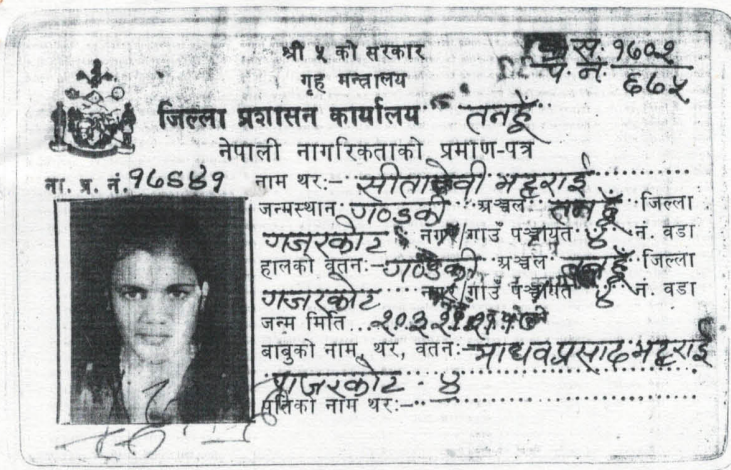 श्री ५ को सरकार
स. १७०२
गृह मन्त्रालय
प. नं. ६७५
जिल्ला प्रशासन कार्यालय तनहूँ
नेपाली नागरिकताको प्रमाण-पत्र
ना. प्र. नं.
नाम थर:- सीतादेवी भट्टराई
जन्मस्थान गण्डकी अञ्चल तनहूँ जिल्ला
गजरकोट नगर/गाउँ पञ्चायत ४ नं. वडा
हालको वतन:- गण्डकी अञ्चल तनहूँ जिल्ला
गजरकोट नगर/गाउँ पञ्चायत ४ नं. वडा
जन्म मिति
बाबुको नाम, थर, वतन:- माधवप्रसाद भट्टराई
गजरकोट - ४
पतिको नाम थर:-